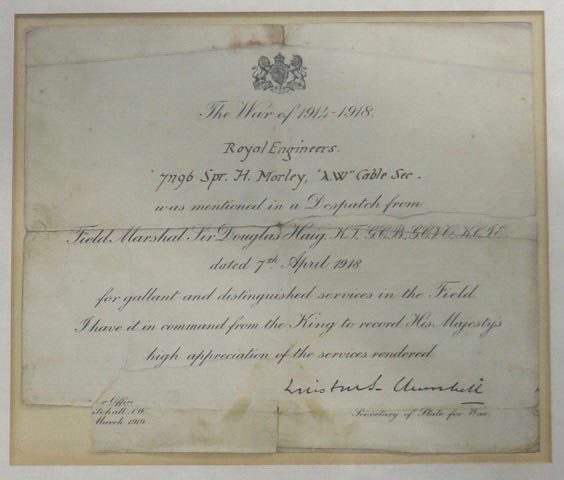 The War of 1914-1918.
Royal Engineers.
Spr. H. Morley, "A.W" Cable Sec.
was mentioned in a Despatch from
Field Marshal Sir Douglas Haig, K.T. G.C.B. G.C.V.O. K.C.I.E.
dated 7th April 1918
for gallant and distinguished services in the Field.
I have it in command from the King to record His Majesty's
high appreciation of the services rendered.
Winston S. Churchill
Secretary of State for War.
r Office
tehall, S.W.
March 1919